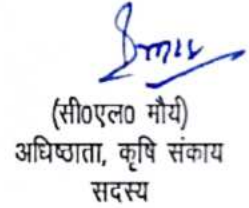 (सी०एल० मौर्य)
अधिष्ठाता, कृषि संकाय
सदस्य